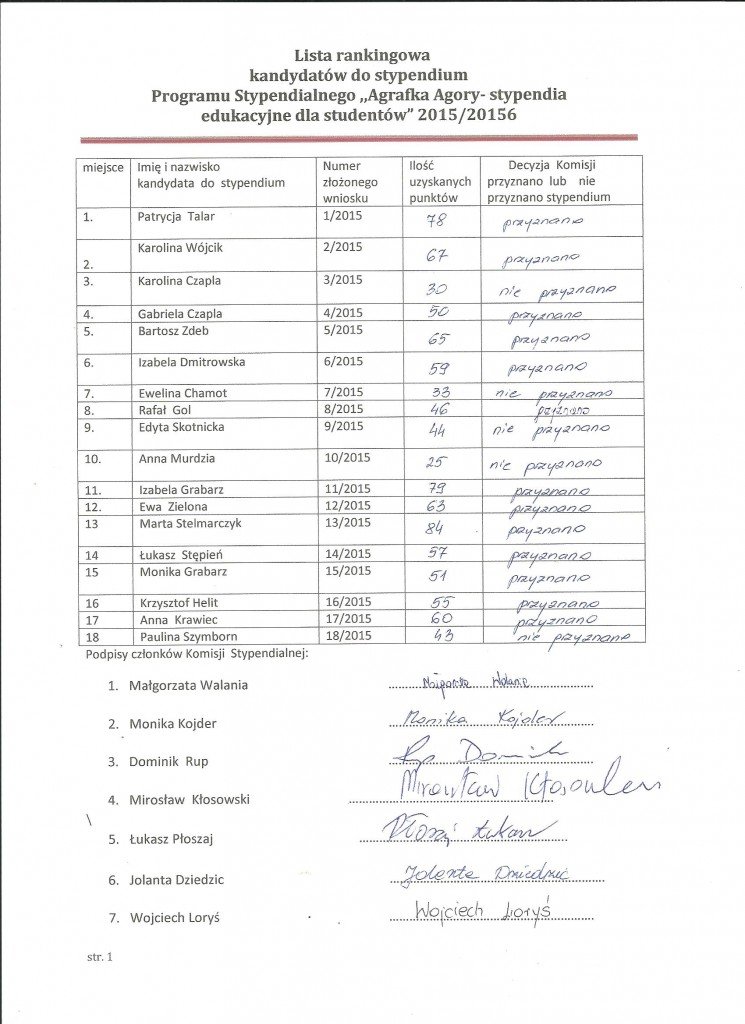 Lista rankingowa
kandydatów do stypendium
Programu Stypendialnego „Agrafka Agory- stypendia
edukacyjne dla studentów” 2015/20156
miejsce Imię i nazwisko kandydata do stypendium Numer złożonego wniosku Ilość uzyskanych punktów Decyzja Komisji przyznano lub nie przyznano stypendium
1. Patrycja Talar 1/2015 78 przyznano
2. Karolina Wójcik 2/2015 67 przyznano
3. Karolina Czapla 3/2015 30 nie przyznano
4. Gabriela Czapla 4/2015 50 przyznano
5. Bartosz Zdeb 5/2015 65 przyznano
6. Izabela Dmitrowska 6/2015 59 przyznano
7. Ewelina Chamot 7/2015 33 nie przyznano
8. Rafał Gol 8/2015 46
9. Edyta Skotnicka 9/2015 44 nie przyznano
10. Anna Murdzia 10/2015 25 nie przyznano
11. Izabela Grabarz 11/2015 79 przyznano
12. Ewa Zielona 12/2015 63 przyznano
13 Marta Stelmarczyk 13/2015 84 przyznano
14 Łukasz Stępień 14/2015 57 przyznano
15 Monika Grabarz 15/2015 51 przyznano
16 Krzysztof Helit 16/2015 55 przyznano
17 Anna Krawiec 17/2015 60 przyznano
18 Paulina Szymborn 18/2015 43 nie przyznano
Podpisy członków Komisji Stypendialnej:
1. Małgorzata Walania
2. Monika Kojder Monika Kojder
3. Dominik Rup Rup Dominik
4. Mirosław Kłosowski Mirosław
5. Łukasz Płoszaj
6. Jolanta Dziedzic Jolanta
7. Wojciech Loryś Wojciech Loryś
str. 1